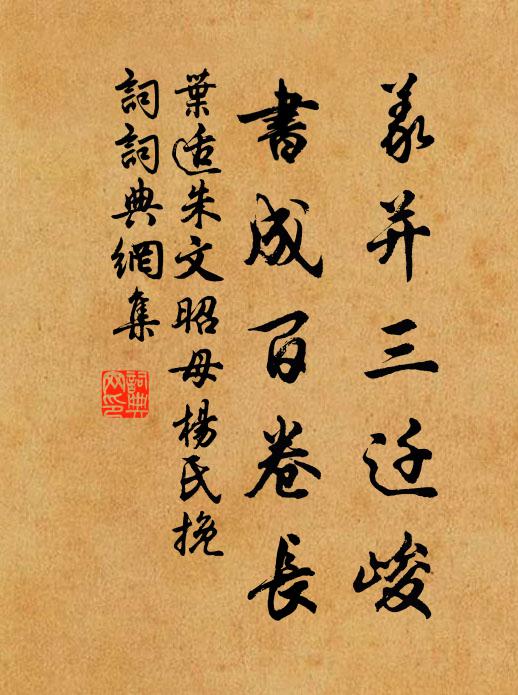 義并三迁峻
書成百卷長
葉适朱文昭母楊氏挽
詞詞典網集
詞典網印